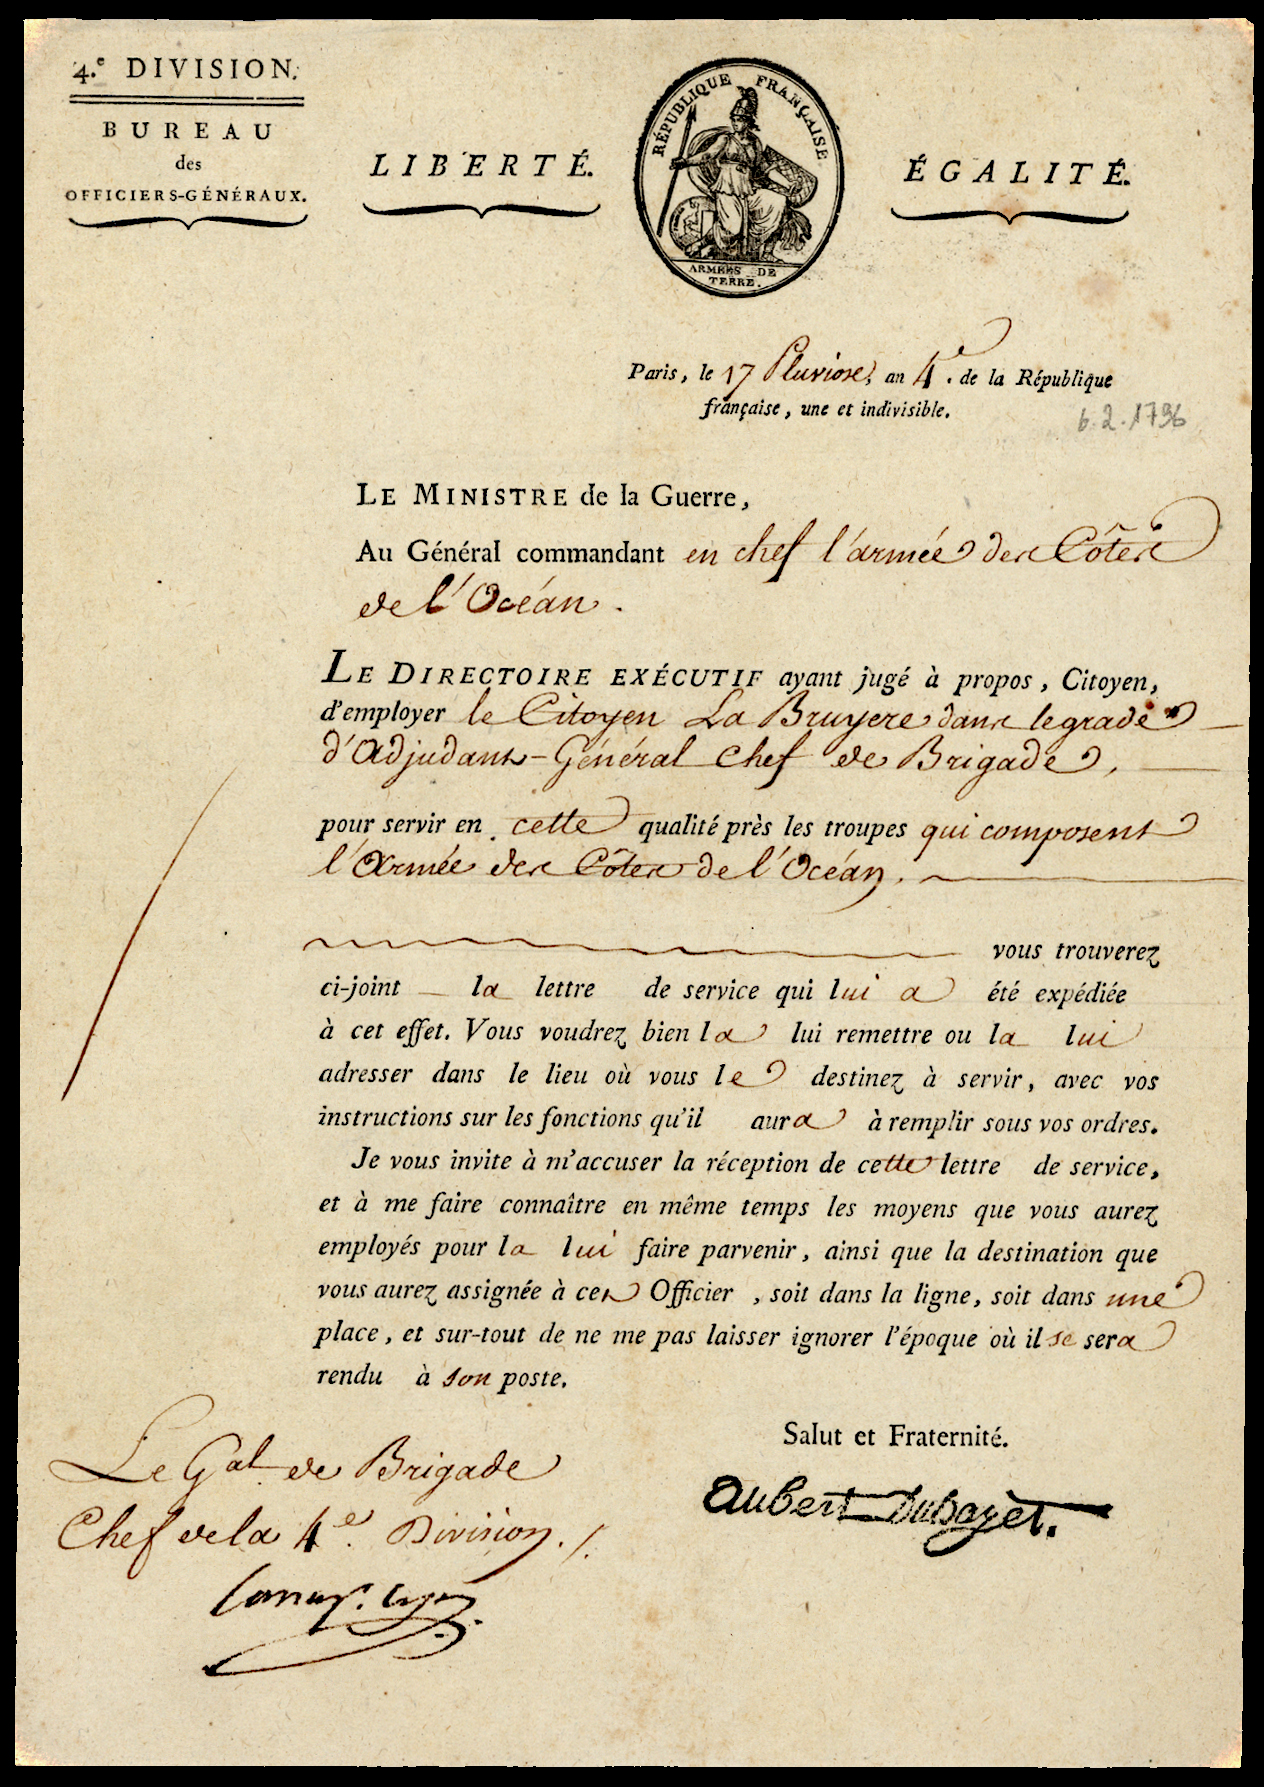 4.e DIVISION.
BUREAU
des
OFFICIERS-GÉNÉRAUX.
LIBERTÉ.
RÉPUBLIQUE FRANÇAISE
ARMÉES DE
TERRE.
ÉGALITÉ.
Paris, le 17 Pluviose, an 4e. de la République
française, une et indivisible.
6.2.1796
LE MINISTRE de la Guerre,
Au Général commandant en chef l'armée des Côtes
de l'Océan.
LE DIRECTOIRE EXÉCUTIF ayant jugé à propos, Citoyen,
d'employer le Citoyen La Bruyere dans le grade
d'Adjudant-Général Chef de Brigade,
pour servir en cette qualité près les troupes qui composent
l'Armée des Côtes de l'Océan.
vous trouverez
ci-joint la lettre de service qui lui a été expédiée
à cet effet. Vous voudrez bien la lui remettre ou la lui
adresser dans le lieu où vous le destinez à servir, avec vos
instructions sur les fonctions qu'il aura à remplir sous vos ordres.
Je vous invite à m'accuser la réception de cette lettre de service,
et à me faire connaître en même temps les moyens que vous aurez
employés pour la lui faire parvenir, ainsi que la destination que
vous aurez assignée à cet Officier, soit dans la ligne, soit dans une
place, et sur-tout de ne me pas laisser ignorer l'époque où il se sera
rendu à son poste.
Salut et Fraternité.
Aubert Dubayet.
Le Gal de Brigade
Chef de la 4e. Division ./.